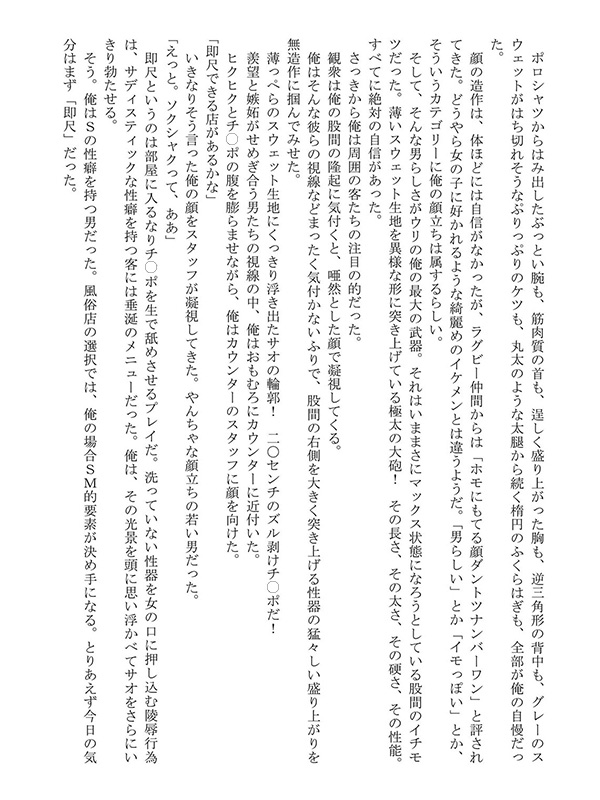 ポロシャツからはみ出したぶっとい腕も、筋肉質の首も、逞しく盛り上がった胸も、逆三角形の背中も、グレーのス
ウェットがはち切れそうなぷりっぷりのケツも、丸太のような太腿から続く楕円のふくらはぎも、全部が俺の自慢だっ
た。
　顔の造作は、体ほどには自信がなかったが、ラグビー仲間からは「ホモにもてる顔ダントツナンバーワン」と評され
てきた。どうやら女の子に好かれるような綺麗めのイケメンとは違うようだ。「男らしい」とか「イモっぽい」とか、
そういうカテゴリーに俺の顔立ちは属するらしい。
　そして、そんな男らしさがウリの俺の最大の武器。それはいままさにマックス状態になろうとしている股間のイチモ
ツだった。薄いスウェット生地を異様な形に突き上げている極太の大砲！　その長さ、その太さ、その硬さ、その性能。
すべてに絶対の自信があった。
　さっきから俺は周囲の客たちの注目の的だった。
　観衆は俺の股間の隆起に気付くと、唖然とした顔で凝視してくる。
　俺はそんな彼らの視線などまったく気付かないふりで、股間の右側を大きく突き上げる性器の猛々しい盛り上がりを
無造作に掴んでみせた。
　薄っぺらのスウェット生地にくっきり浮き出たサオの輪郭！　二〇センチのズル剥けチ〇ポだ！
　羨望と嫉妬がせめぎ合う男たちの視線の中、俺はおもむろにカウンターに近付いた。
　ヒクヒクとチ〇ポの腹を膨らませながら、俺はカウンターのスタッフに顔を向けた。
「即尺できる店があるかな」
　いきなりそう言った俺の顔をスタッフが凝視してきた。やんちゃな顔立ちの若い男だった。
「えっと。ソクシャクって、ああ」
　即尺というのは部屋に入るなりチ〇ポを生で舐めさせるプレイだ。洗っていない性器を女の口に押し込む陵辱行為
は、サディスティックな性癖を持つ客には垂涎のメニューだった。俺は、その光景を頭に思い浮かべてサオをさらにい
きり勃たせる。
　そう。俺はＳの性癖を持つ男だった。風俗店の選択では、俺の場合ＳＭ的要素が決め手になる。とりあえず今日の気
分はまず「即尺」だった。